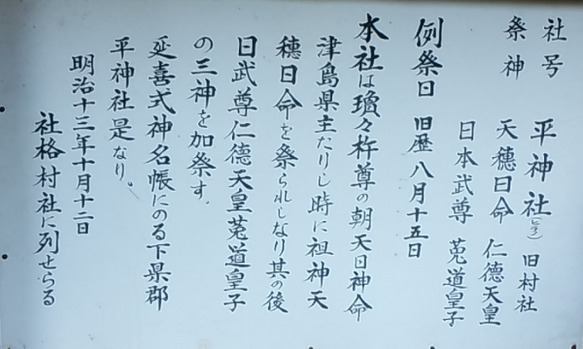 社号 平神社(ヒラ) 旧村社
祭神 天穂日命 仁德天皇
日本武尊 菟道皇子
例祭日 旧暦八月十五日
本社は瓊々杵尊の朝天日神命
津島県主たりし時に祖神天
穂日命を祭られしなり其の後
日武尊仁德天皇菟道皇子
の三神を加祭す.
延喜式神名帳にのる下県郡
平神社是なり。
明治十三年十月十二日
社格村社に列せらる